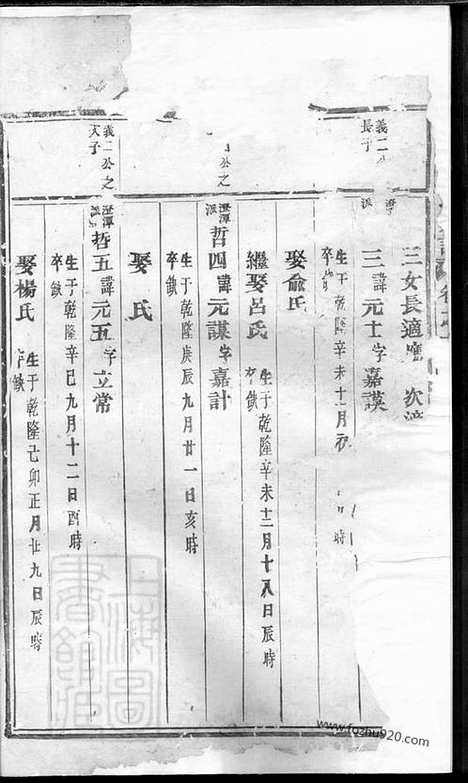 三女長適 次適
義二公
長子
澄
派
三諱元士字嘉謨
生于乾隆辛未十二月初
時
卒
娶俞氏
繼娶呂氏
生于乾隆辛未十二月十八日辰時
卒缺
公之
澄潭
派
哲四諱元謀字嘉計
生于乾隆庚辰九月廿一日亥時
卒缺
娶 氏
義二公之
次子
澄潭
派
哲五諱元五字立常
生于乾隆辛巳九月十二日酉時
卒缺
娶楊氏
生于乾隆己卯正月廿九日辰時
卒缺
上海圖
書館藏
www.fozhu920.com